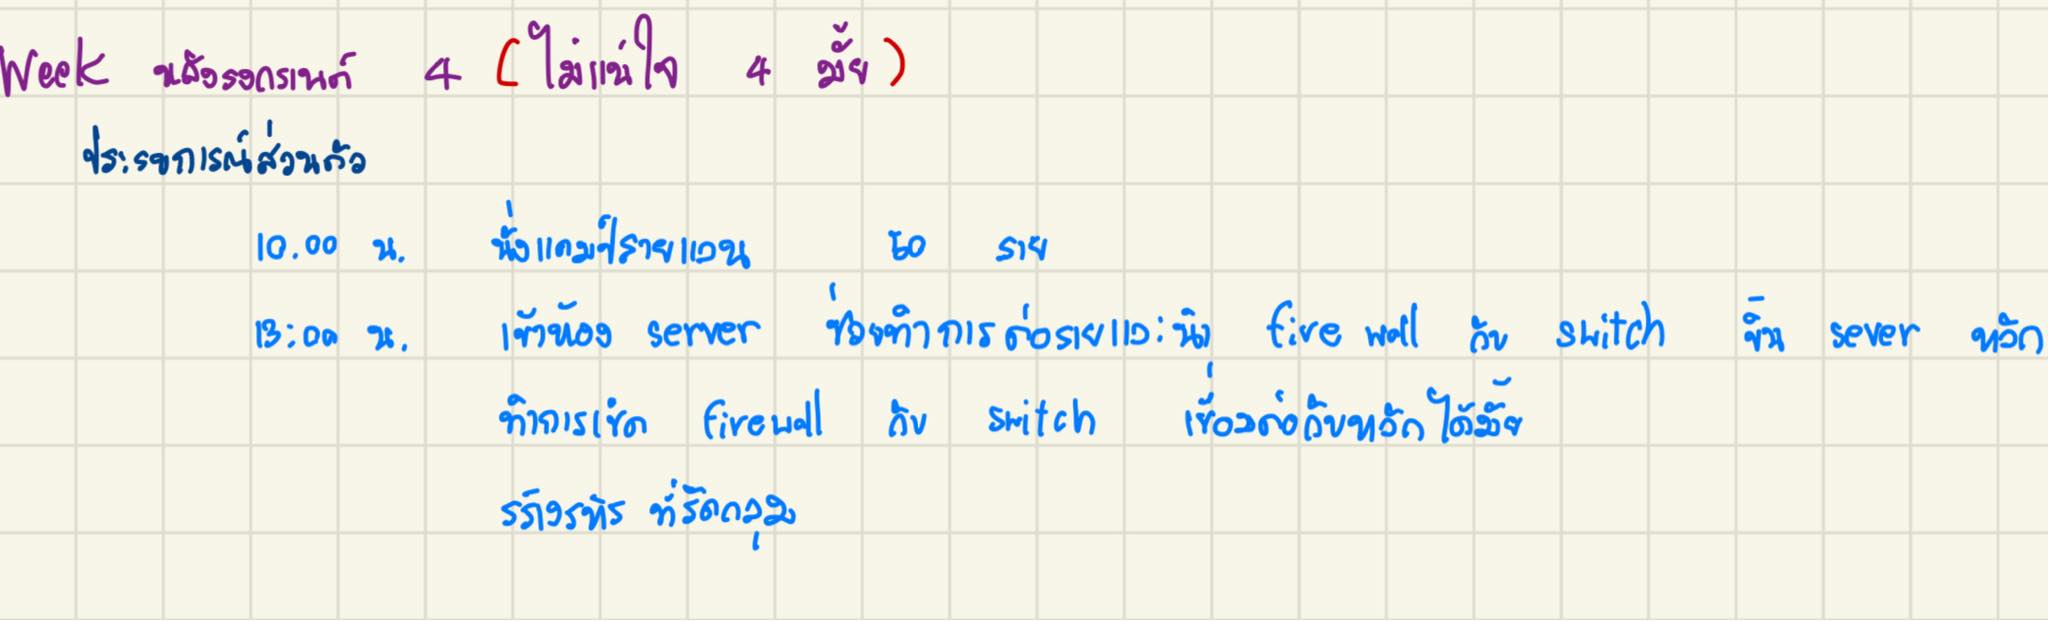 Week หลังสงกรานต์ 4 (ไม่แน่ใจ 4 มั้ย)
ประสบการณ์ส่วนตัว
10.00 น. นั่งแคมป์สายแลน 50 สาย
13:00 น. เข้าห้อง server ช่วยทำการต่อสายและนำ fire wall กับ switch ขึ้น sever หลัก
ทำการเช็ค firewall กับ switch เชื่อมต่อกับหลักได้มั้ย
สร้างรหัส ที่รัดกุม